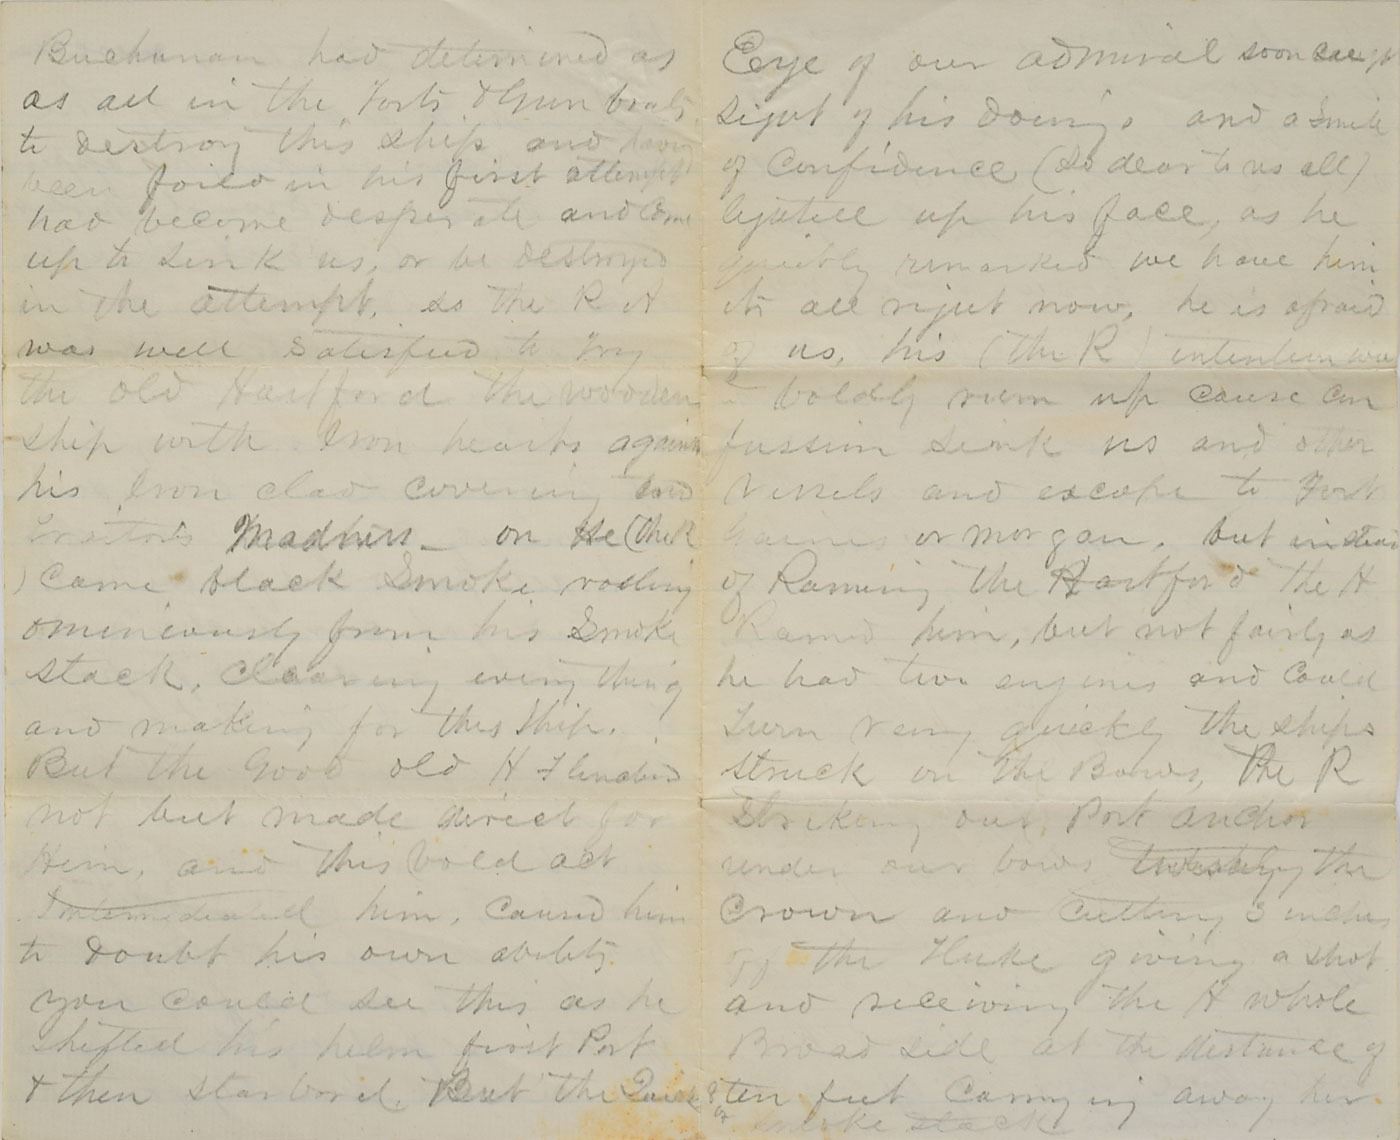 Buchanan had determined as
as all in the Forts & Gun boats
to destroy this ship and having
been foiled in his first attempt
had become desperate and come
up to sink us, or be destroyed
in the attempt, so the R A
was well satisfied to try
the old Hartford the wooden
ship with Iron hearts against
his Iron clad covering and
traitors Madness_ on He (the R
) came black Smoke rolling
ominiously from his Smoke
stack, clearing every thing
and making for this ship.
But the Good old H flinched
not but made direct for
Him, and this bold act
Intemediated him, caused him
to doubt his own ability
you could see this as he
shifted his helm first Port
& then starbord. But the Quick
Eye of our admiral soon caught
sight of his doings and a smile
of Confidence (so dear to us all)
lighted up his face, as he
quietly remarked we have him
all right now, he is afraid
of us, his (the R) intention was
boldly rum up cause con
fussion sink us and other
vessels and escape to Fort
Gaines or morgan. but instead
of Raming the Hartford the H
Ramed him, but not fairly as
he had two engines and could
Turn very quickly the ships
struck on the Bows, The R
Striking our Port anchor
under our bows the
Crown and cutting 3 inches
off the Fluke giving a shot
and receiving the H whole
Broad side at the distance of
ten feet Carrying away her
smoke stack